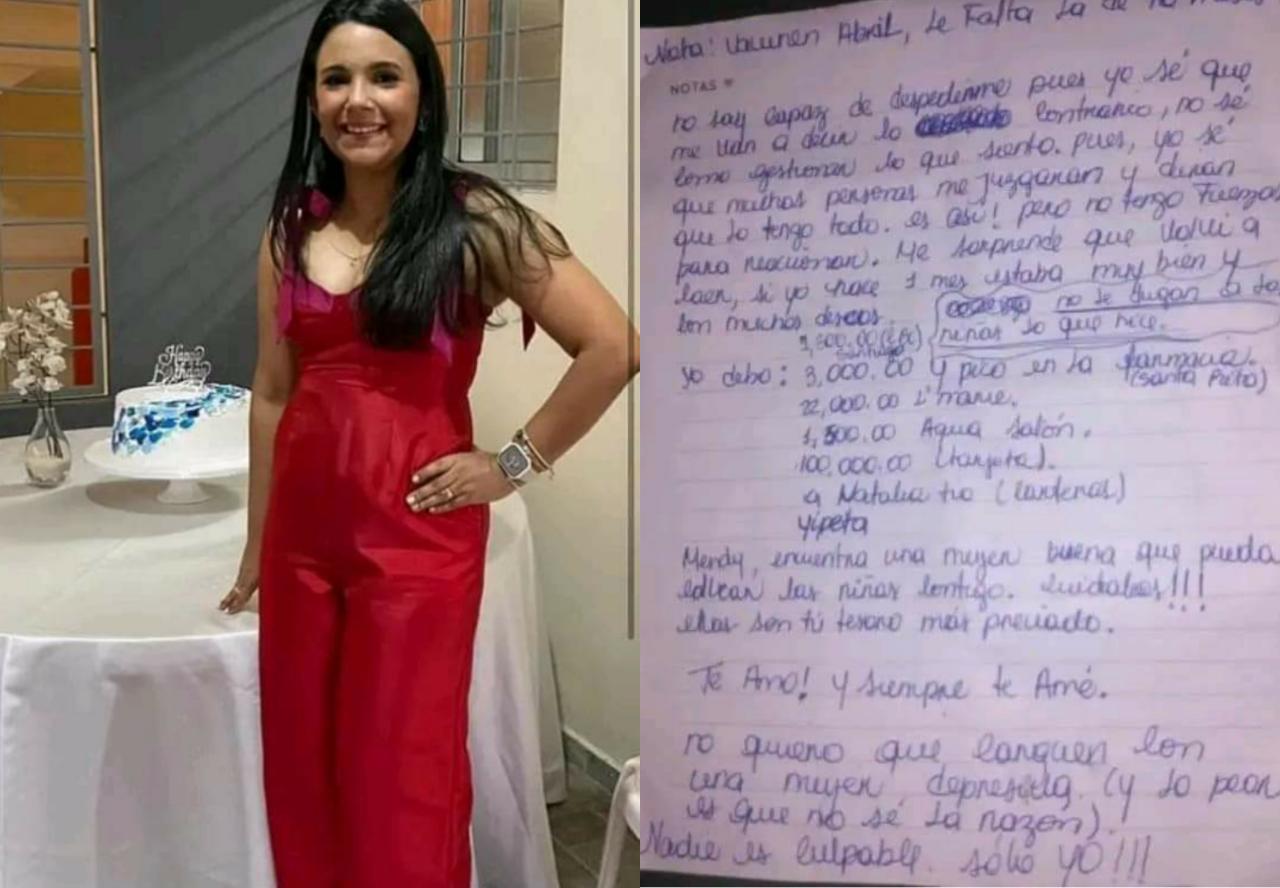 Happy
Birthday
Nota: vacunen Abril, le Falta la de
NOTAS
no soy capaz de despedirme pues yo sé que
me van a decir lo contrario, no sé
como gestionar lo que siento. pues, yo sé
que muchas personas me juzgaran y diran
que lo tengo todo. es asi! pero no tengo Fuerzas
para reaccionar. Me sorprende que volví a
caer, si yo hace 1 mes estaba muy bien y
con muchos deseos.
no se digan a las
niñas lo que hice.
Santiago
yo debo: 3,000.00 y pico en la farmacia.
(Santa
22,000.00 L'mane.
1,500.00 Agua salón.
100,000.00 (tarjeta).
a Natalia tio (cardenas)
yipeta
Mendy, encuentra una mujer buena que pueda
educar las niñas contigo. cuidalas!!!
ellas son tú tesoro más preciado.
Te Amo! y siempre te Amé.
no quiero que carguen con
una mujer depresiva. (y lo peor
es que no sé la razón).
Nadie es culpable. sólo yo!!!